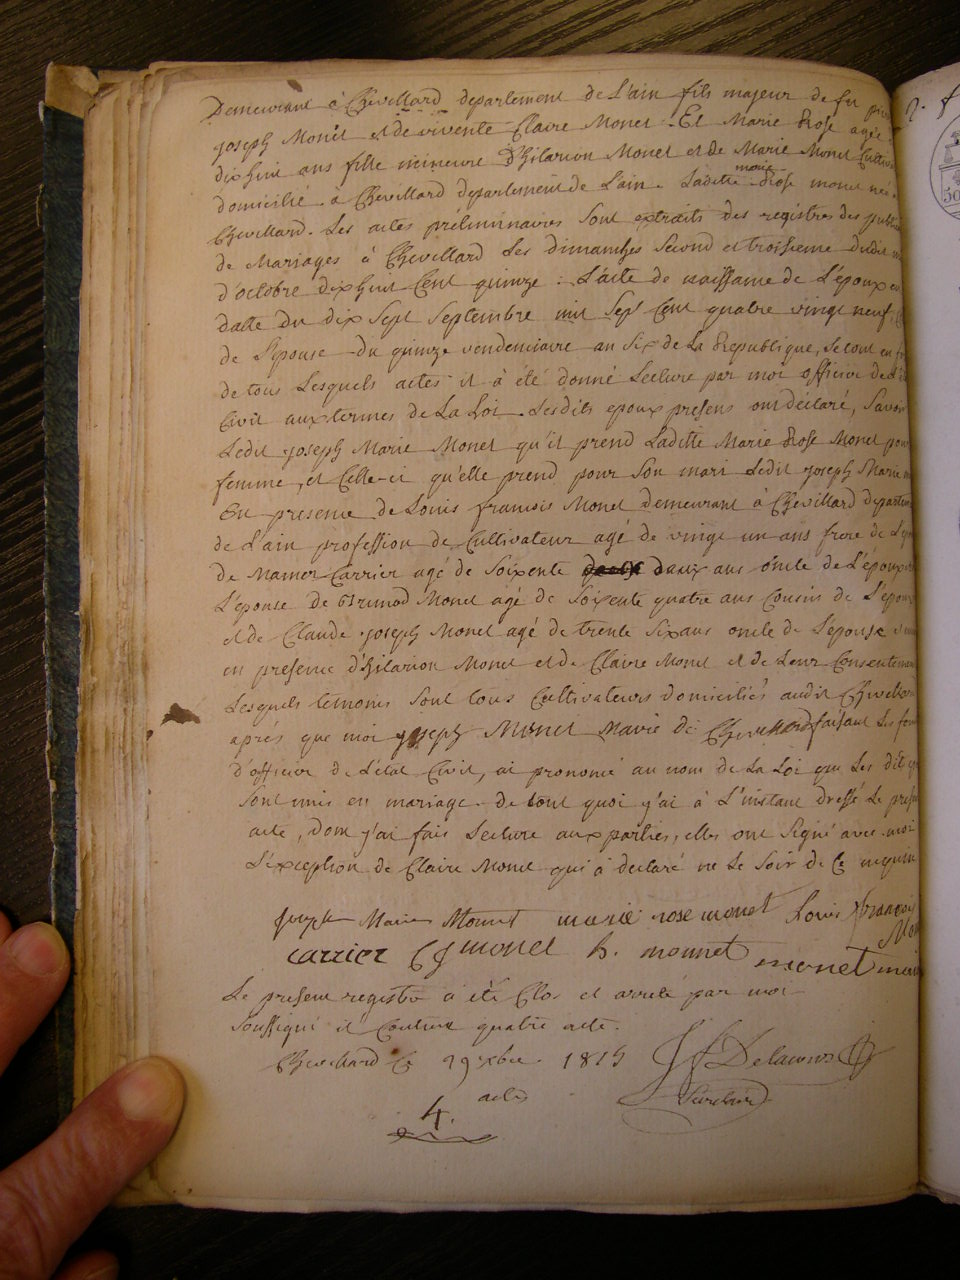 Demeurant à Chevillard departement de L'ain fils majeur de fu
joseph Monet et de vivente Claire Monet. Et Marie Rose agée
dix huit ans fille mineure d'hilarion Monet et de Marie Monet
domicilié à Chevillard departement de L'ain. Laditte marie Rose monet née
Chevillard. Les actes préliminaires sont extraits des registres des
de Mariages à Chevillard Les dimanches second et troisieme dudit
d'octobre dix huit Cent quinze : L'acte de naissance de L'epoux en
datte du dix Sept Septembre mil Sept Cent quatre vingt neuf,
de l'epouse du quinze vendemiaire an Six de La Republique, Le tout en
de tous Lesquels actes il à été donné Lecture par moi officier de
Civil aux termes de La Loi. Lesdits epoux presens ont déclaré, Savoir
Ledit joseph Marie Monet qu'il prend Laditte Marie Rose Monet pour
femme, et Celle-ci qu'elle prend pour Son mari Ledit joseph Marie
En presence de Louis francois Monet demeurant à Chevillard
de L'ain profession de Cultivateur agé de vingt un ans frere de
de Mamer Carrier agé de Soixente deux ans oncle de L'époux
L'épouse de Brunod Monet agé de Soixente quatre ans Cousin de L'epoux
et de Claude joseph Monet agé de trente Six ans oncle de L'épouse
en presence d'hilarion Monet et de Claire Monet et de Leur Consentement
Lesquels temoins Sont tous Cultivateurs domiciliés audit Chevillard
aprés que moi joseph Monet Maire de Chevillard faisant Les
d'officier de L'état Civil, ai prononcé au nom de La Loi que Les dits
Sont unis en mariage. de tout quoi j'ai à L'instant dressé Le present
acte, dont j'ai fait Lecture aux parties, elles ont Signé avec moi
L'éxception de Claire Monet qui à declaré ne Le Savoir de Ce
joseph Marie Monnet marie rose monet Louis françois
carrier C J monet h. monnet monet maire
Le present registre à été Clos et arreté par moi
Soussigné il Contient quatre acte.
Chevillard Ce 29 xbre 1815
actes
4.